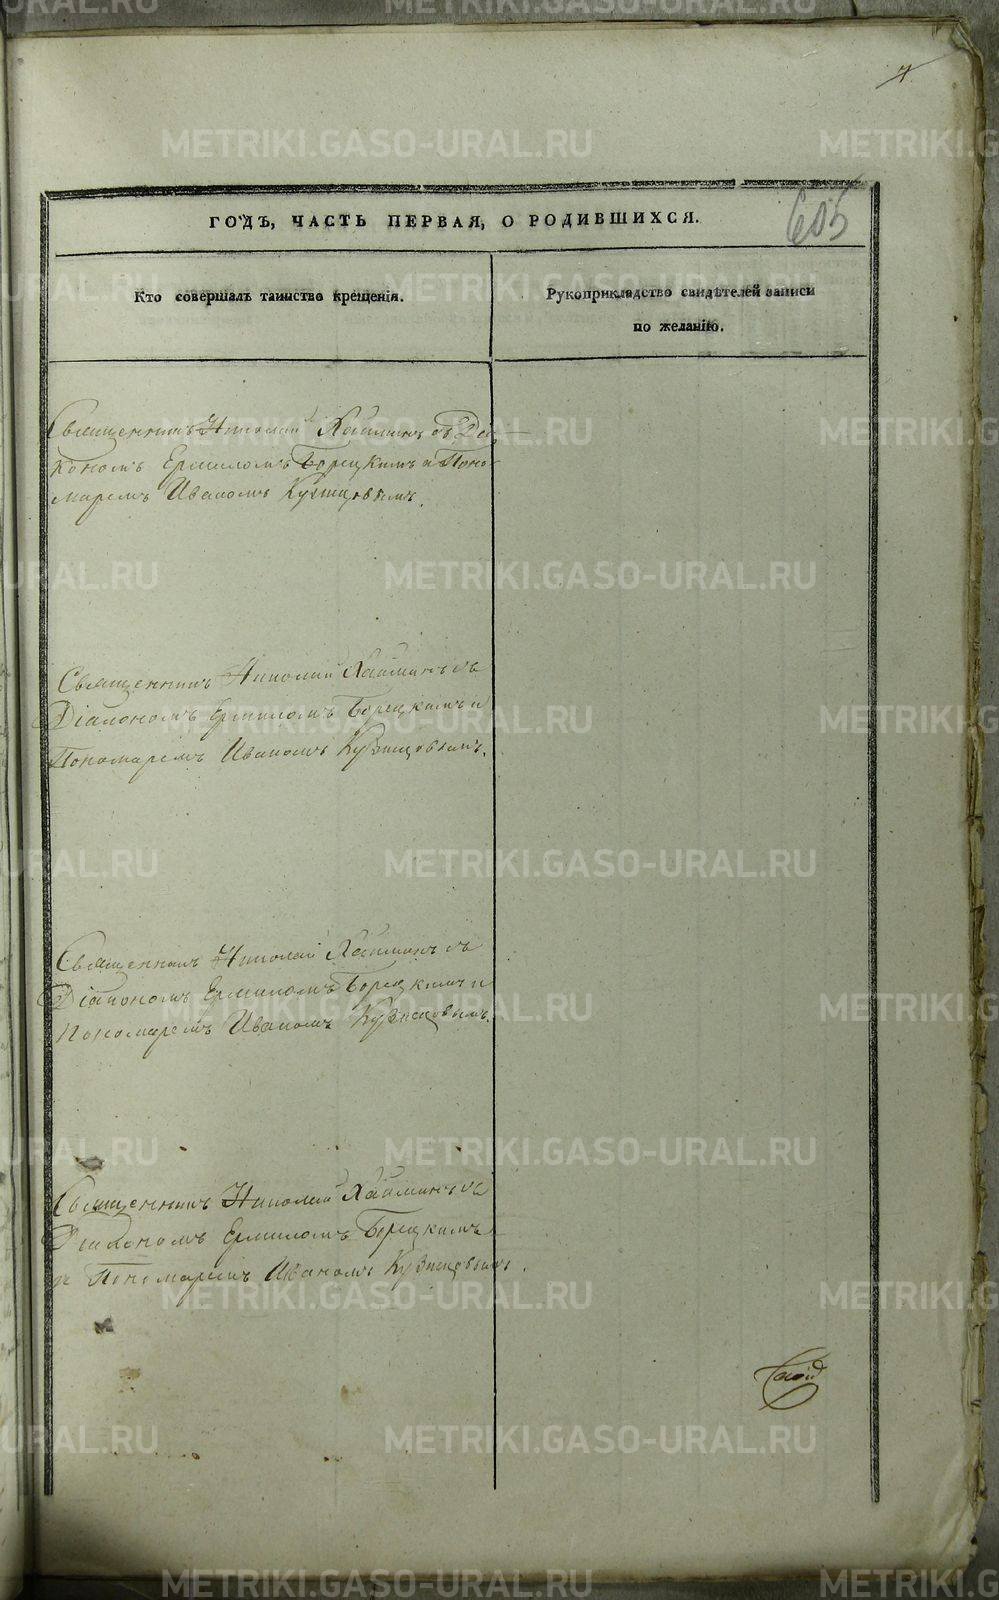 7
605
ГОДЪ, ЧАСТЬ ПЕРВАЯ, О РОДИВШИХСЯ.
Кто совершалъ таинство крещенія.
Рукоприкладство свидѣтелей записи
по желанію.
Священникъ Николай Хайминъ съ Діа
кономъ Ермиломъ Борецкимъ и Поно
маремъ Иваномъ Кузнецовымъ.
Священникъ Николай Хайминъ съ
Діакономъ Ермиломъ Борецкимъ и
Пономаремъ Иваномъ Кузнецовымъ.
Священникъ Николай Хайминъ съ
Діакономъ Ермиломъ Борецкимъ и
Пономаремъ Иваномъ Кузнецовымъ.
Священникъ Николай Хайминъ съ
Діакономъ Ермиломъ Борецкимъ
и Пономаремъ Иваномъ Кузнецовымъ.
METRIKI.GASO-URAL.RU